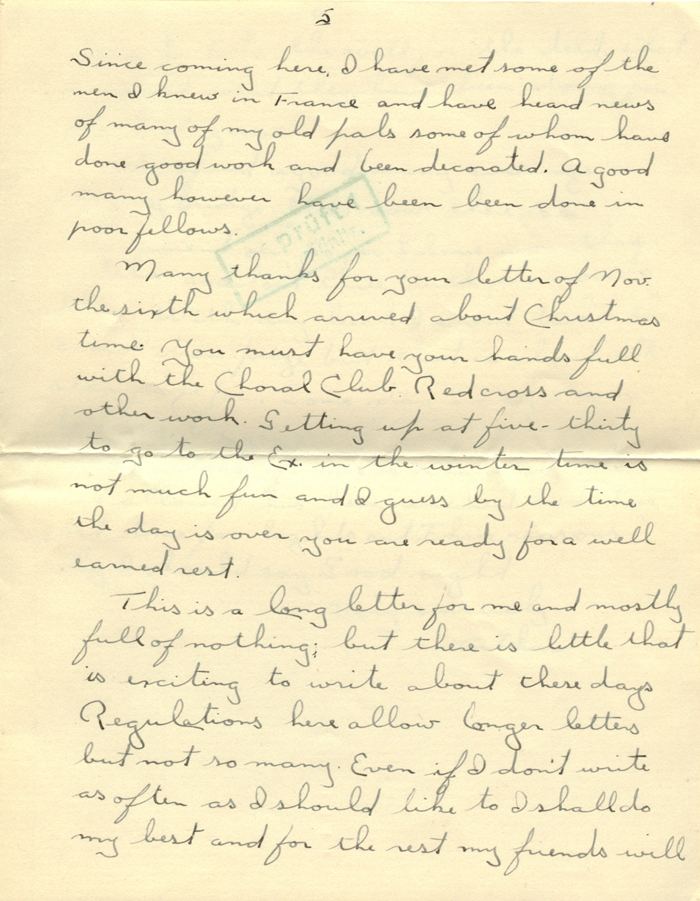 5
Since coming here, I have met some of the
men I knew in France and have heard news
of many of my old pals some of whom have
done good work and been decorated. A good
many however have been been done in
poor fellows.
Geprüft
Many thanks for your letter of Nov.
the sixth which arrived about Christmas
time. You must have your hands full
with the Choral Club. Redcross and
other work. Getting up at five-thirty
to go to the Ex. in the winter time is
not much fun and I guess by the time
the day is over you are ready for a well
earned rest.
This is a long letter for me and mostly
full of nothing; but there is little that
is exciting to write about these days
Regulations here allow longer letters
but not so many. Even if I don't write
as often as I should like to I shall do
my best and for the rest my friends will